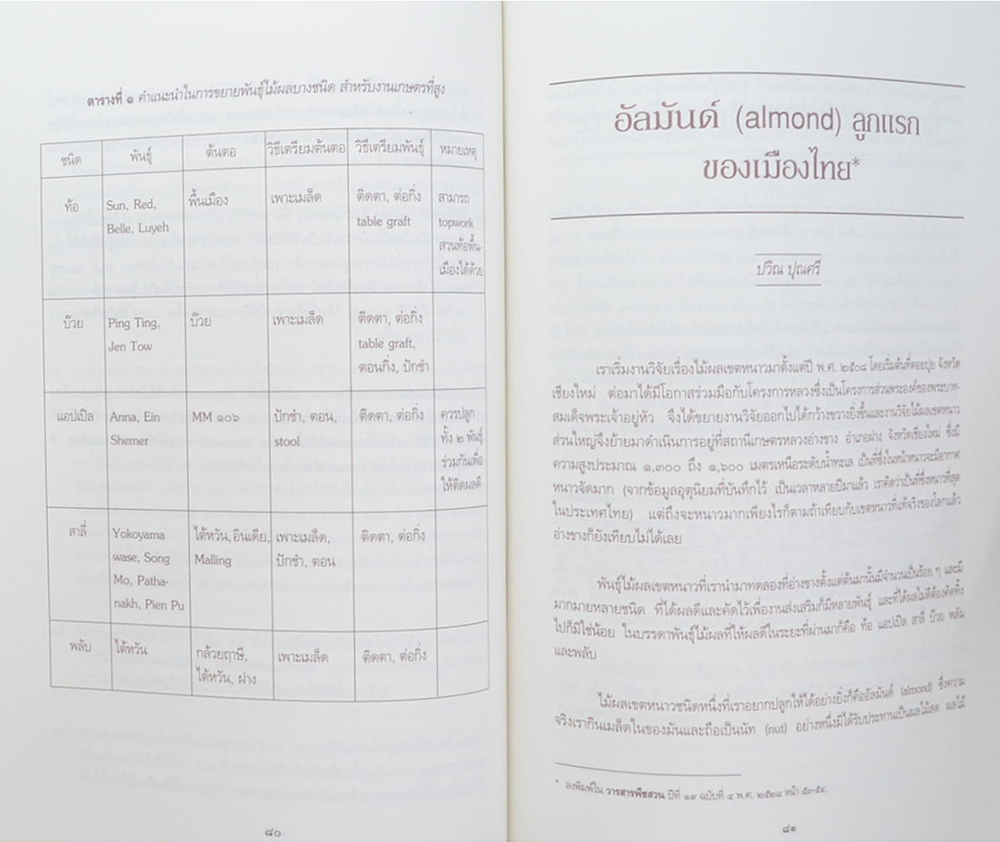 ตารางที่ ๑ คำแนะนำในการขยายพันธุ์ไม้ผลบางชนิด สำหรับงานเกษตรที่สูง
ชนิด พันธุ์ ต้นตอ วิธีเตรียมต้นตอ วิธีเตรียมพันธุ์ หมายเหตุ
ท้อ Sun, Red, พื้นเมือง เพาะเมล็ด ติดตา, ต่อกิ่ง สามารถ
Belle, Luyeh table graft topwork
สวนท้อพื้น-
เมืองได้ด้วย
บ๊วย Ping Ting, บ๊วย เพาะเมล็ด ติดตา, ต่อกิ่ง
Jen Tow table graft,
ตอนกิ่ง, ปักชำ
แอปเปิล Anna, Ein MM ๑๐๖ ปักชำ, ตอน, ติดตา, ต่อกิ่ง ควรปลูก
Shemer stool ทั้ง ๒ พันธุ์
ร่วมกันเพื่อ
ให้ติดผลดี
สาลี่ Yokoyama ไต้หวัน,อินเดีย, เพาะเมล็ด, ติดตา, ต่อกิ่ง
wase, Song Malling ปักชำ, ตอน
Mo, Patha-
nakh, Pien Pu
พลับ ไต้หวัน กล้วยฤาษี, เพาะเมล็ด ติดตา, ต่อกิ่ง
ไต้หวัน, ฝาง
๘๐
อัลมันด์ (almond) ลูกแรก
ของเมืองไทย*
ปวิณ ปุณศรี
เราเริ่มงานวิจัยเรื่องไม้ผลเขตหนาวมาตั้งแต่ปี พ.ศ. ๒๕๐๘ โดยเริ่มต้นที่ดอยปุย จังหวัด
เชียงใหม่ ต่อมาได้มีโอกาสร่วมมือกับโครงการหลวงซึ่งเป็นโครงการส่วนพระองค์ของพระบาท-
สมเด็จพระเจ้าอยู่หัว จึงได้ขยายงานวิจัยออกไปได้กว้างขวางยิ่งขึ้นและงานวิจัยไม้ผลเขตหนาว
ส่วนใหญ่จึงย้ายมาดำเนินการอยู่ที่สถานีเกษตรหลวงอ่างขาง อำเภอฝาง จังหวัดเชียงใหม่ ซึ่งมี
ความสูงประมาณ ๑,๓๐๐ ถึง ๑,๖๐๐ เมตรเหนือระดับน้ำทะเล เป็นที่ซึ่งในหน้าหนาวจะมีอากาศ
หนาวจัดมาก (จากข้อมูลอุตุนิยมที่บันทึกไว้ เป็นเวลาหลายปีมาแล้ว เราคิดว่าเป็นที่ซึ่งหนาวที่สุด
ในประเทศไทย) แต่ถึงจะหนาวมากเพียงไรก็ตามถ้าเทียบกับเขตหนาวที่แท้จริงของโลกแล้ว
อ่างขางก็ยังเทียบไม่ได้เลย
พันธุ์ไม้ผลเขตหนาวที่เรานำมาทดลองที่อ่างขางตั้งแต่ต้นมานั้นมีจำนวนเป็นร้อย ๆ และมี
มากมายหลายชนิด ที่ได้ผลดีและคัดไว้เพื่องานส่งเสริมก็มีหลายพันธุ์ และที่ได้ผลไม่ดีต้องตัดทิ้ง
ไปก็มิใช่น้อย ในบรรดาพันธุ์ไม้ผลที่ให้ผลดีในระยะที่ผ่านมาก็คือ ท้อ แอปเปิล สาลี่ บ๊วย พลัม
และพลับ
ไม้ผลเขตหนาวชนิดหนึ่งที่เราอยากปลูกให้ได้อย่างยิ่งก็คืออัลมันด์ (almond) ซึ่งความ
จริงเรากินเมล็ดในของมันและถือเป็นนัท (nut) อย่างหนึ่งมิได้รับประทานเป็นผลไม้สด ผลไม้
* ลงพิมพ์ใน วารสารพืชสวน ปีที่ ๑๙ ฉบับที่ ๔ พ.ศ. ๒๕๒๘ หน้า ๕๓-๕๕.
๘๑